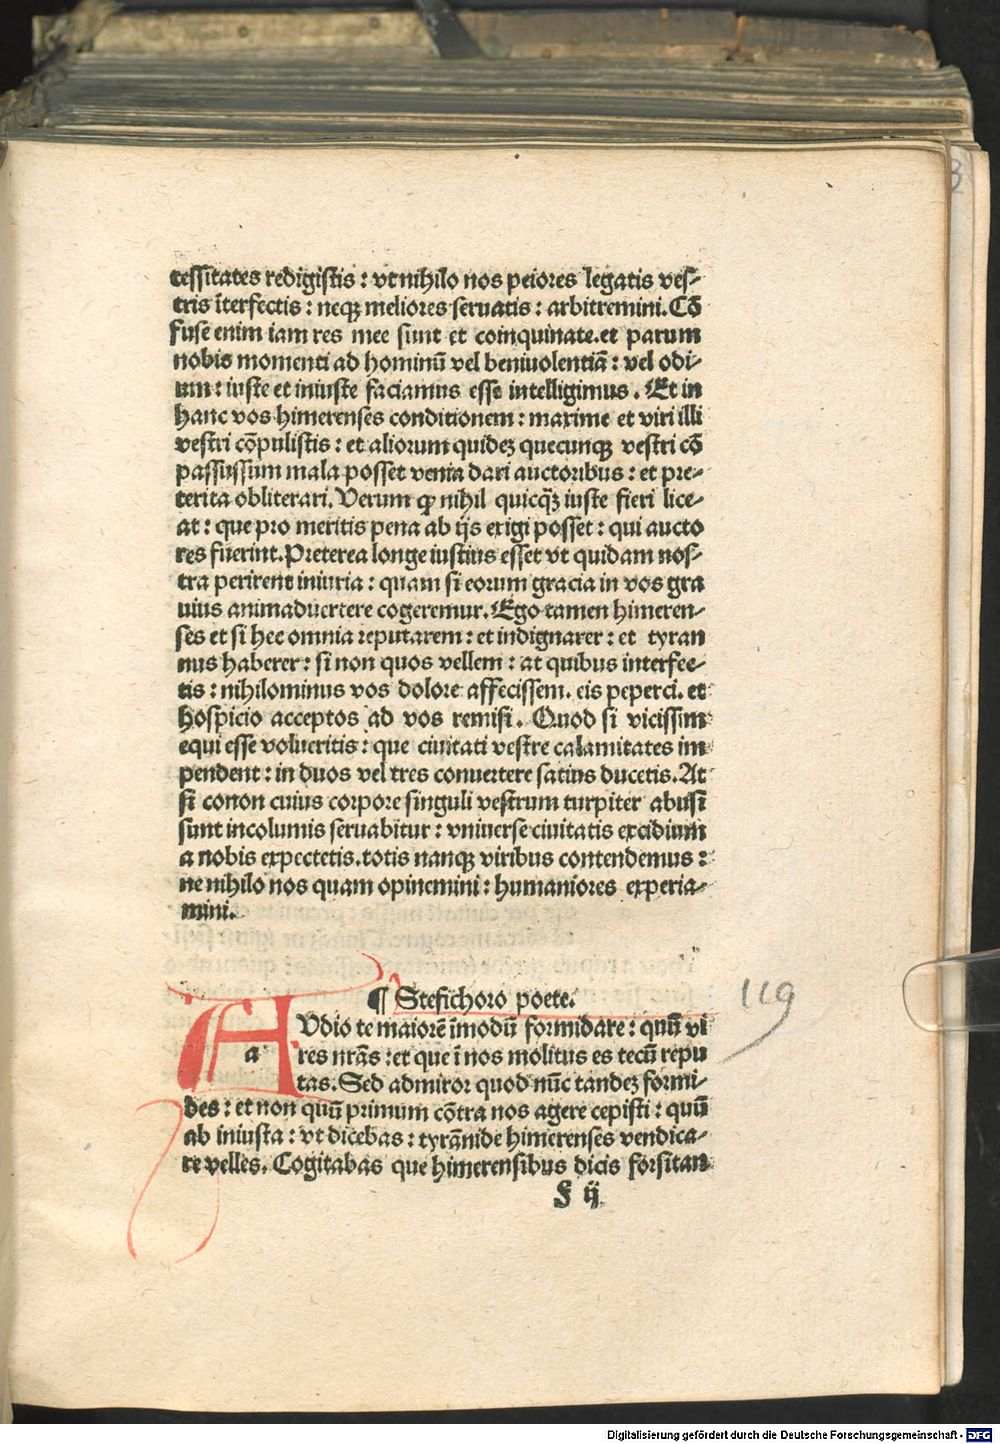 cessitates redigistis : vt nihilo nos peiores legatis ves-
tris īterfectis : neqꝫ meliores seruatis : arbitremini. Cō
fuse enim iam res mee sunt et coinquinate. et parum
nobis momenti ad hominū vel beniuolentiā : vel odi-
um : iuste et iniuste faciamus esse intelligimus . Et in
hanc vos himerenses conditionem : maxime et viri illi
vestri cōpulistis : et aliorum quideꝫ quecunqꝫ vestri cō
passussum mala posset venia dari auctoribus : et pre-
terita obliterari. Verum ꝙ nihil quicq̄ꝫ iuste fieri lice-
at : que pro meritis pena ab ijs exigi posset : qui aucto
res fuerint. Preterea longe iustius esset vt quidam nos-
tra perirent iniuria : quam si eorum gracia in vos gra
uius animaduertere cogeremur. Ego tamen himeren-
ses et si hec omnia reputarem : et indignarer : et tyran
nus haberer : si non quos vellem : at quibus interfec-
tis : nihilominus vos dolore affecissem. eis peperci. et
hospicio acceptos ad vos remisi. Quod si vicissim
equi esse volueritis : que ciuitati vestre calamitates im
pendent : in duos vel tres conuertere satius ducetis. At
si conon cuius corpore singuli vestrum turpiter abusi
sunt incolumis seruabitur : vniuerse ciuitatis excidium
a nobis expectetis. totis nanqꝫ viribus contendemus :
ne nihilo nos quam opinemini : humaniores experia-
mini.
¶ Stesichoro poete.
119
A
a
Vdio te maiorē īmodū formidare : quū vi
res nr̄as : et que ī nos molitus es tecū repu
tas. Sed admiror quod nūc tandeꝫ formi-
des : et non quū primum cōtra nos agere cepisti : quū
ab iniusta : vt dicebas : tyrānide himerenses vendica-
re velles. Cogitabas que himerensibus dicis forsitan
f ij
Digitalisierung gefördert durch die Deutsche Forschungsgemeinschaft - DFG